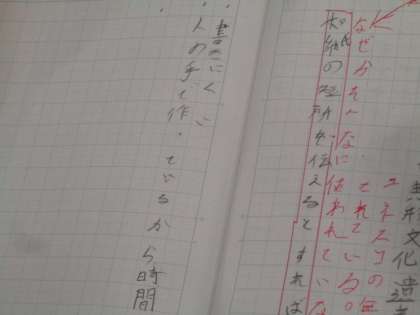 形文化遺
ユネスコの無
れている。
なぜかそんなに使われていな
和紙の短所を伝えるとすれば
・書きにくい
・人の手で作っているから時間